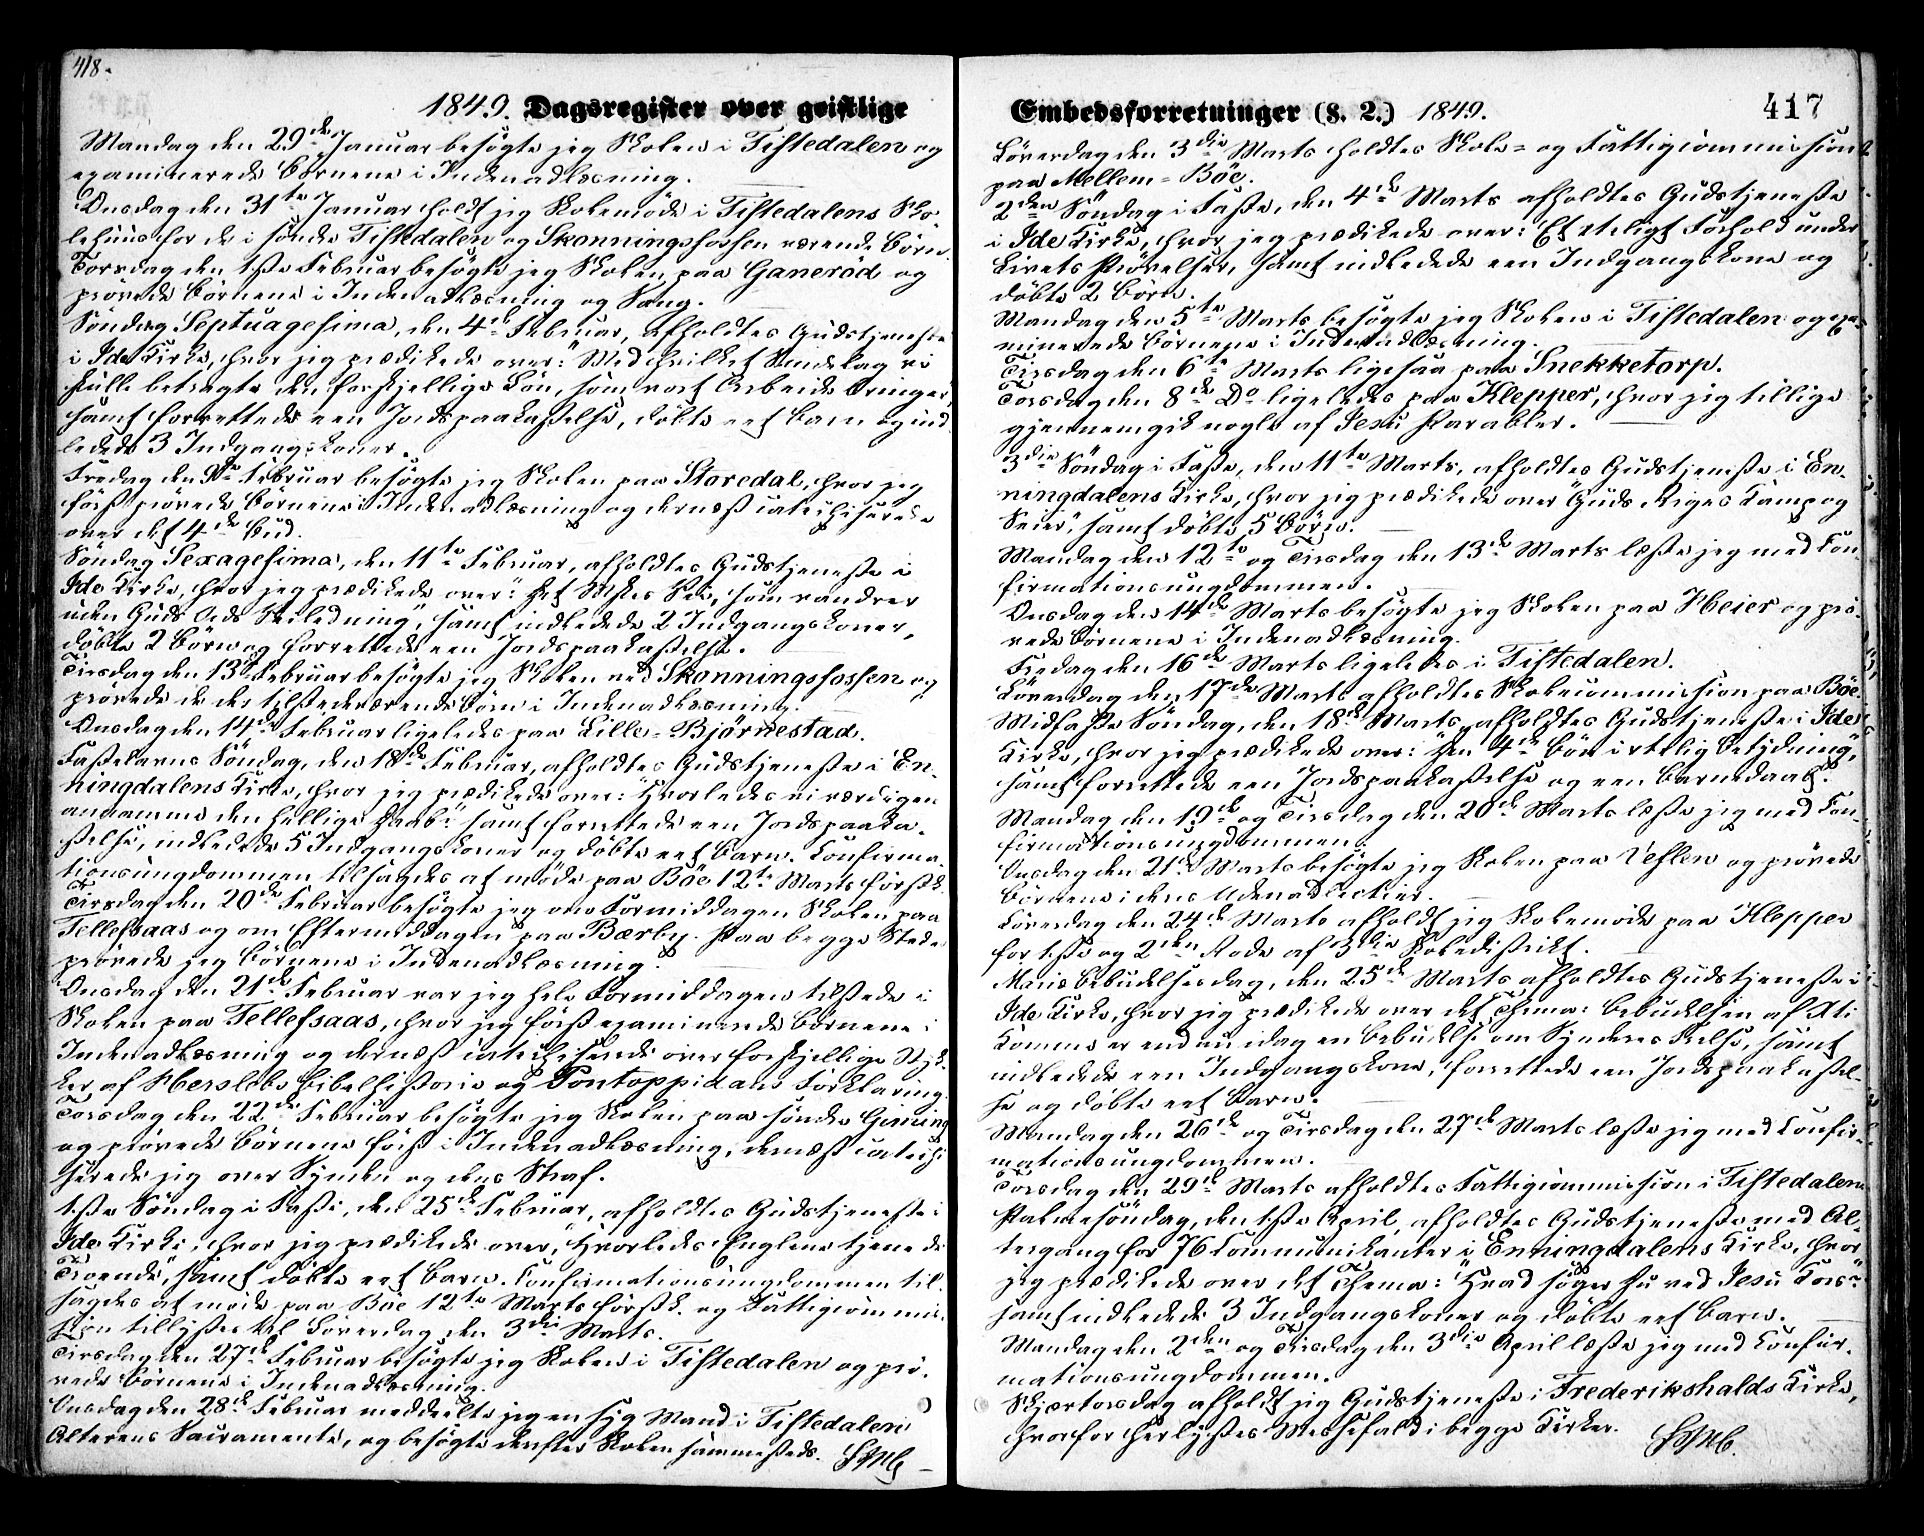 418.
1849. Dagsregister over geistlige
Mandag den 29de Januar besögte jeg Skolen i Tistedalen og
examinerede Börnene i Indenadlæsning.
Onsdag den 31te Januar holdt jeg Skolemöde i Tistedalens Sko
lehuus for de i söndre Tistedalen og Skonningsfossen værende Börn.
Torsdag den 1ste Februar besögte jeg Skolen paa Ganeröd og
prövede Börnene i Indenadlæsning og Sang.
Söndag Septuagesima, den 4de Februar, afholdtes Gudstjeneste
i Ide Kirke, hvor jeg prædikede over: "Med hvilket Sindelag vi
skulle betragte den forskjellige Lön, som vort Arbeide bringer,
samt forrettede een Jordspaakastelse, döbte eet Barn og ind
ledede 3 Indgangskoner.
Fredag den 9de Februar besögte jeg Skolen paa Storedal, hvor jeg
först prövede Börnene i Indenadlæsning og dernæst catechiserede
over det 4de Bud.
Söndag Sexagesima, den 11te Februar, afholdtes Gudstjeneste i
Ide Kirke, hvor jeg prædikede over: "Det Mskes Vei, som vandrer
uden Guds Ords Veiledning", samt indledede 2 Indgangskoner,
döbte 2 Börn og forrettede een Jordspaakastelse.
Tirsdag den 13de Februar besögte jeg Skolen ved Skonningsfossen og
prövede de der tilstedeværende Börn i Indenadlæsning.
Onsdag den 14de Februar ligeledes paa Lille-Bjørnestad.
Fastelavns Söndag, den 18de Februar, afholdtes Gudstjeneste i En-
ningdalens Kirke, hvor jeg prædikede over: "Hvorledes vi værdigen
annamme den hellige Daab" samt forrettede een Jordspaaka-
stelse, indledede 5 Indgangskoner og döbte eet Barn. Confirma-
tionsungdommen tilsagdes at möde paa Böe 12te Marts förstk.
Tirsdag den 20de Februar besögte jeg om Formiddagen Skolen paa
Tellefsaas og om Eftermiddagen paa Bærby. Paa begge Steder
prövede jeg Börnene i Indenadlæsning.
Onsdag den 21de Februar var jeg hele Formiddagen tilstede i
Skolen paa Tellefsaas, hvor jeg först examinerede Börnene i
Indenadlæsning og dernæst catechiserede over forskjellige Styk-
ker af Herslebs Bibelhistorie og Pontoppidans Forklaring.
Torsdag den 22de Februar besögte jeg Skolen paa söndre
og prövede Börnene först i Indenadlæsning, dernæst catechi
serede jeg over Synden og dens Straf.
1ste Söndag i Faste, den 25de Februar, afholdtes Gudstjeneste i
Ide Kirke, hvor jeg prædikede over, "Hvorledes Englene tjene de
Troende", samt döbte eet Barn. Confirmationsungdommen til-
sagdes at möde paa Böe 12te Marts förstk. og Fattigcommis-
sion tillystes til Löverdag den 3die Marts.
Tirsdag den 27de Februar besögte jeg Skolen i Tistedalen og prö-
vede Börnene i Indenadlæsning.
Onsdag den 28de Februar meddeelte jeg en syg Mand i Tistedalen
Alterens Sacramente, og besögte derefter Skolen sammesteds.
Embedsforretninger (§. 2.) 1849.
417
Löverdag den 3die Marts holdtes Skole- og Fattigcommission
paa Mellem-Böe.
2den Söndag i Faste, den 4de Marts afholdtes Gudstjeneste
i Ide Kirke, hvor jeg prædikede over: Et christeligt Forhold under
Livets Prövelser, samt indledede een Indgangskone og
döbte 2 Börn.
Mandag den 5te Marts besögte jeg Skolen i Tistedalen og exa-
minerede Börnene i Indenadlæsning.
Tirsdag den 6te Marts ligesaa paa Snekketorp.
Torsdag den 8de Do ligeledes paa Klepper, hvor jeg tillige
gjennemgik nogle af Jesu Parabler.
3die Söndag i Faste, den 11te Marts, afholdtes Gudstjeneste i En-
ningdalens Kirke, hvor jeg prædikede over "Guds Riges Kamp og
Seier", samt döbte 5 Börn.
Mandag den 12te og Tirsdag den 13de Marts læste jeg med Con-
firmationsungdommen.
Onsdag den 14de Marts besögte jeg Skolen paa Heier og prö-
vede Börnene i Indenadlæsning.
Fredag den 16de Marts ligeledes i Tistedalen.
Löverdag den 17de Marts afholdtes Skolecommission paa Böe.
Midfaste Söndag, den 18de Marts, afholdtes Gudstjeneste i Ide
Kirke, hvor jeg prædikede over: "Den 4de Bön i christelig Betydning",
samt forrettede een Jordspaakastelse og een Barnedaab.
Mandag den 19de og Tirsdag den 20de Marts læste jeg med Con-
firmationsungdommen.
Onsdag den 21de Marts besögte jeg Skolen paa Veflen og prövede
Börnene i deres Udenadlectier.
Löverdag den 24de Marts afholdt jeg Skolemöde paa Klepper
for 1ste og 2den Rode af 3die Skoledistrikt.
Mariæ Bebudelsesdag, den 25de Marts afholdtes Gudstjeneste i
Ide Kirke, hvor jeg prædikede over det Thema: Bebudelsen af Xti
Komme er endnu idag en Bebudelse om Synderes Frelse, samt
indledede een Indgangskone, forrettede een Jordspaakastel-
se og döbte eet Barn.
Mandag den 26de og Tirsdag den 27de Marts læste jeg med Confir-
mationsungdommen.
Torsdag den 29de Marts afholdtes Fattigcommission i Tistedalen.
Palmesöndag, den 1ste April, afholdtes Gudstjeneste med Al-
tergang for 76 Communikanter i Enningdalens Kirke, hvor
jeg prædikede over det Thema: "Hvad söger Du ved Jesu Kors"
samt indledede 3 Indgangskoner og döbte eet Barn.
Mandag den 2den og Tirsdag den 3die April læste jeg med Confir-
mationsungdommen.
Skjærtorsdag afholdt jeg Gudstjeneste i Frederikshalds Kirke,
hvorfor herlystes Messefald i begge Kirker.